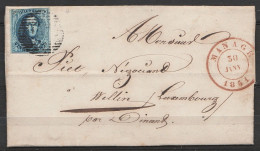 Monsieur
Pice Négociant
Wellin (Luxembourg)
par Dinant
MANAGE
30
JUIN
1851